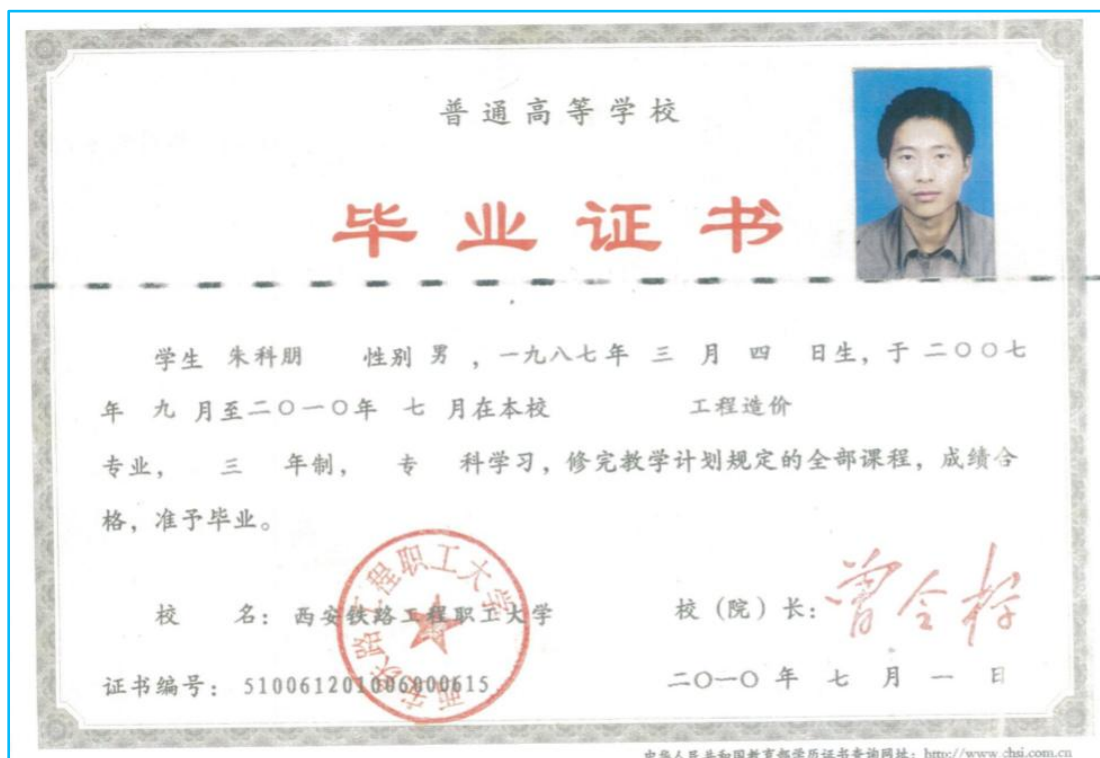 普通高等学校
毕业证书
学生 朱科朋 性别 男 ，一九八七年 三 月 四 日生，于 二〇〇七
年 九 月至二〇一〇年 七 月在本校 工程造价
专业， 三 年制， 专 科学习，修完教学计划规定的全部课程，成绩合
格，准予毕业。
西安铁路工程职工大学
校 名：西安铁路工程职工大学 校（院）长：
证书编号：510061201006000615 二〇一〇 年 七 月 一 日
中华人民共和国教育部学历证书查询网址：http://www.chsi.com.cn